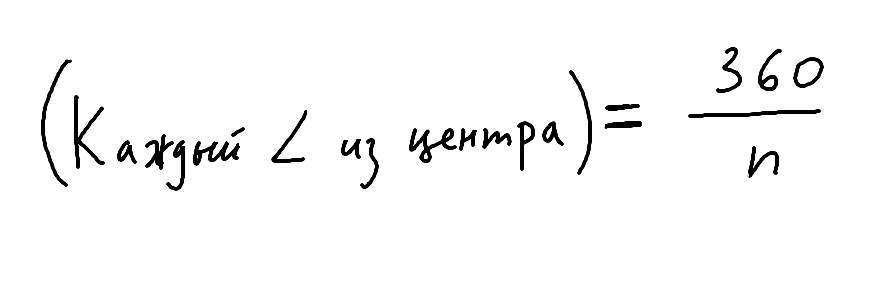 (Каждый ∠ из центра) = 360/n